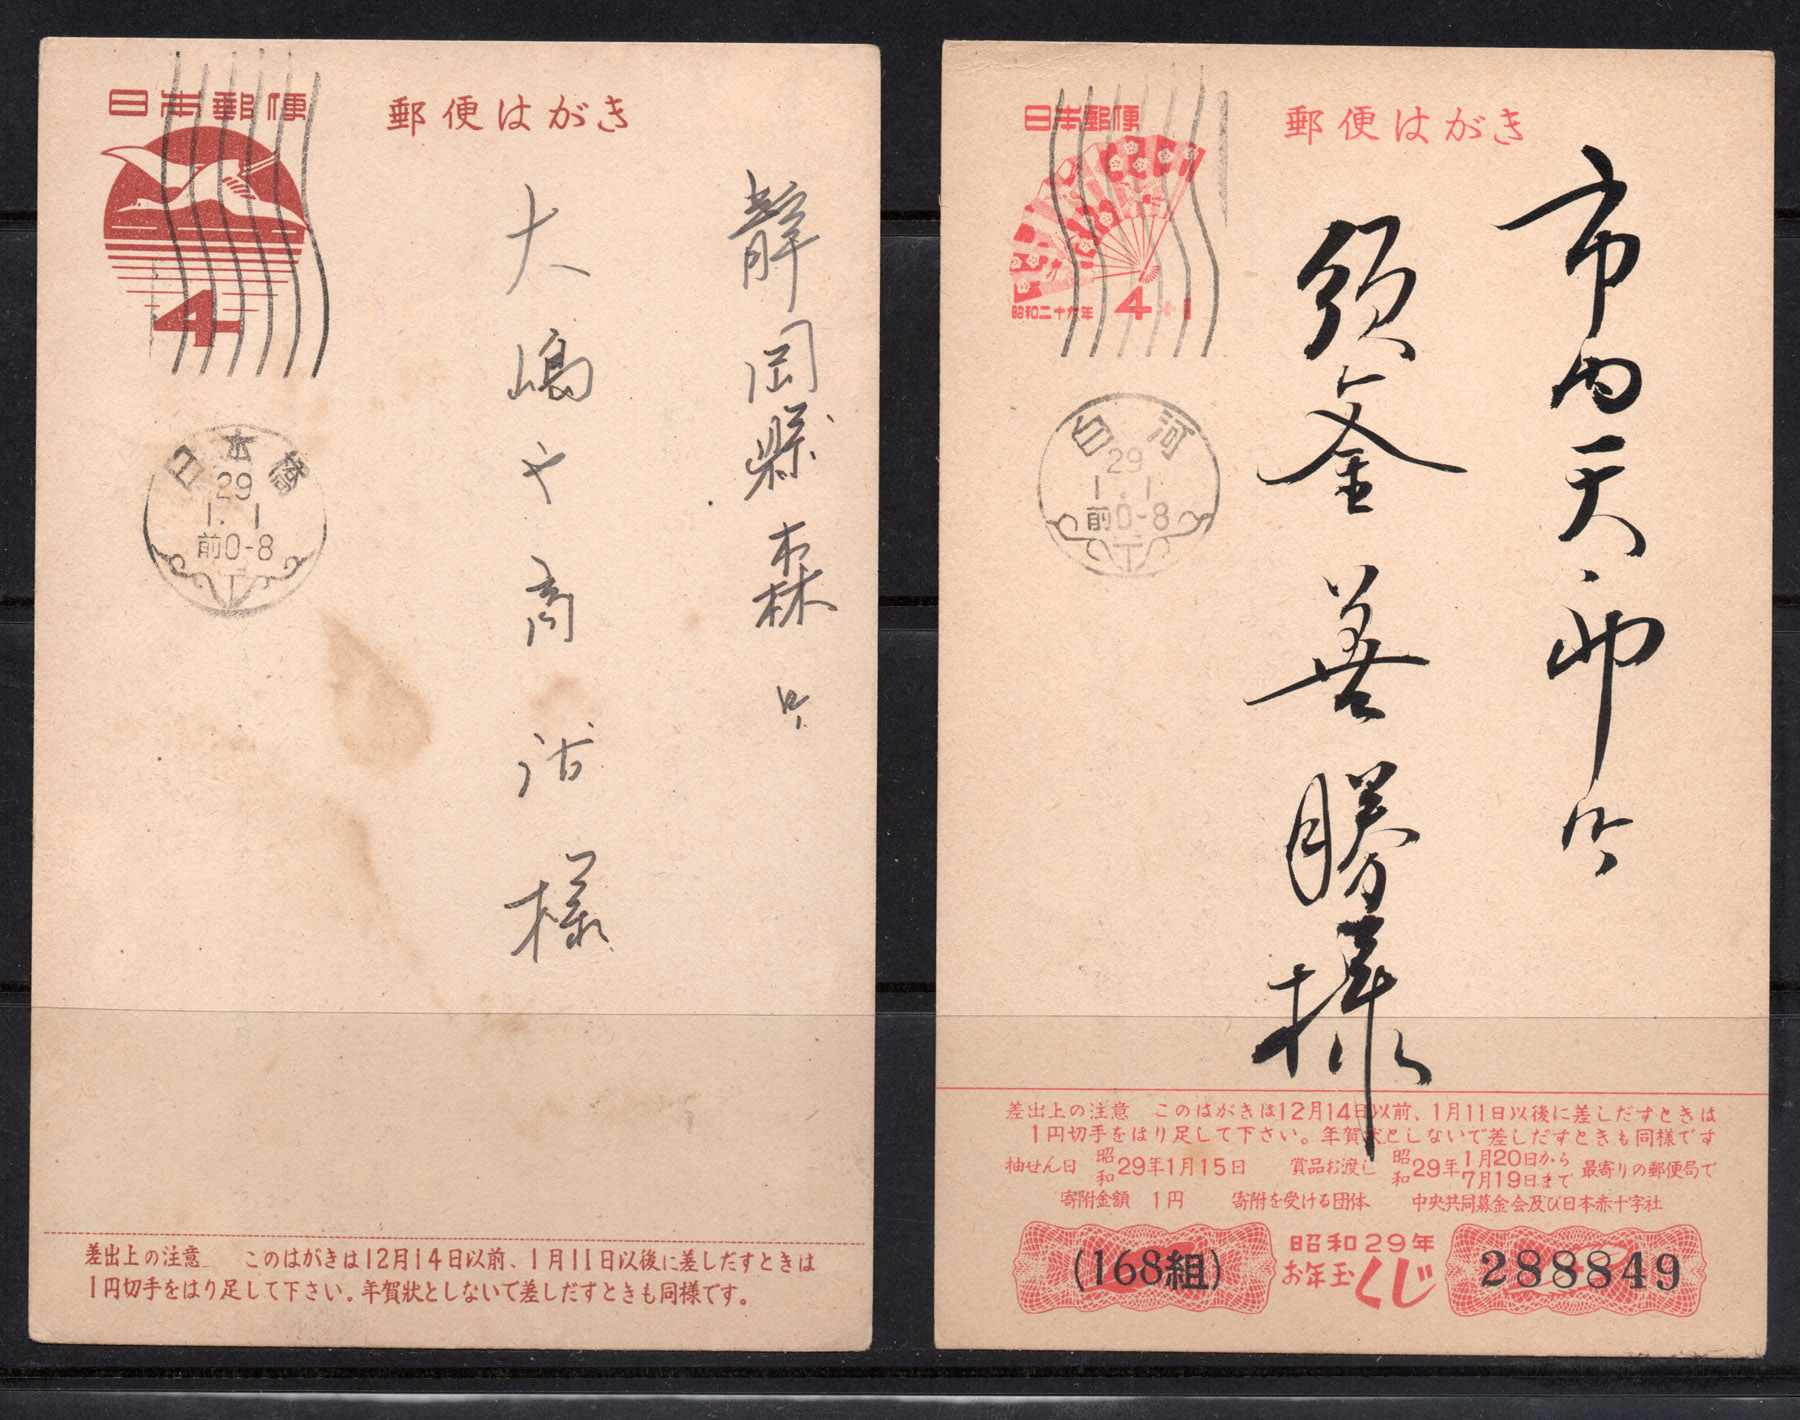 日本郵便
郵便はがき
4
日本橋
29
1.1
前0-8
静岡縣森町
大嶋や商店様
差出上の注意 このはがきは12月14日以前、1月11日以後に差しだすときは
1円切手をはり足して下さい。年賀状としないで差しだすときも同様です。
日本郵便
郵便はがき
昭和二十九年 4+1
白河
29
1.1
前0-8
市内天神町
善勝様
差出上の注意 このはがきは12月14日以前、1月11日以後に差しだすときは
1円切手をはり足して下さい。年賀状としないで差しだすときも同様です
抽せん日 昭和29年1月15日 賞品お渡し 昭和29年1月20日から7月19日まで 最寄りの郵便局で
寄附金額 1円 寄附を受ける団体 中央共同募金会及び日本赤十字社
(168組) 昭和29年お年玉くじ 288849